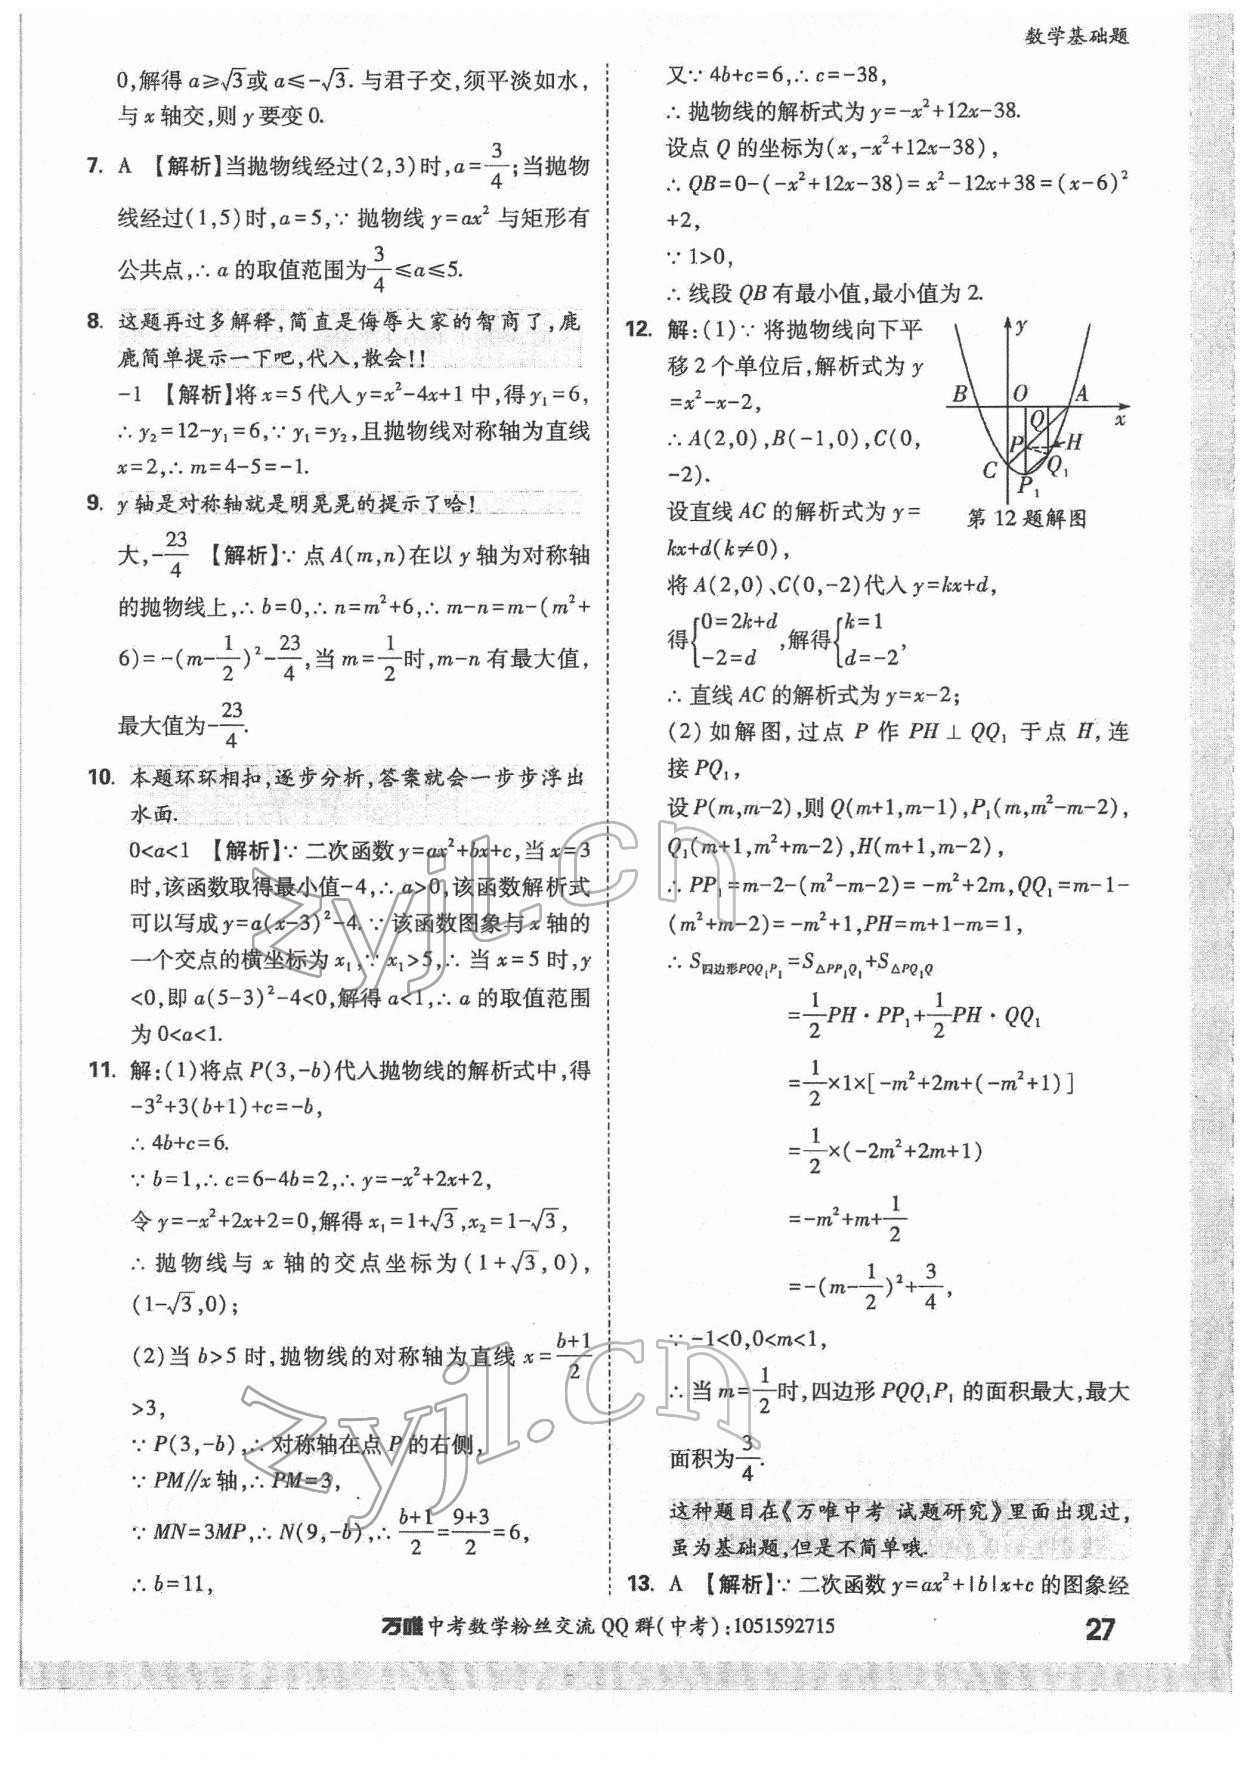 数学基础题
0,解得 a≥√3或 a≤-√3. 与君子交,须平淡如水,
与 x 轴交,则 y 要变 0.
7. A 【解析】当抛物线经过(2,3)时,a=3/4;当抛物
线经过(1,5)时,a=5,∵ 抛物线 y=ax² 与矩形有
公共点,∴ a 的取值范围为3/4≤a≤5.
8. 这题再过多解释,简直是侮辱大家的智商了,鹿
鹿简单提示一下吧,代入,散会!!
-1 【解析】将 x=5 代入 y=x²-4x+1 中,得 y₁=6,
∴ y₂=12-y₁=6,∵ y₁=y₂,且抛物线对称轴为直线
x=2,∴ m=4-5=-1.
9. y 轴是对称轴就是明晃晃的提示了哈!
大,-23/4 【解析】∵ 点 A(m,n)在以 y 轴为对称轴
的抛物线上,∴ b=0,∴ n=m²+6,∴ m-n=m-(m²+
6)=-(m-1/2)²-23/4,当 m=1/2时,m-n 有最大值,
最大值为-23/4.
10. 本题环环相扣,逐步分析,答案就会一步步浮出
水面.
0<a<1 【解析】∵ 二次函数 y=ax²+bx+c,当 x=3
时,该函数取得最小值-4,∴ a>0,该函数解析式
可以写成 y=a(x-3)²-4. ∵ 该函数图象与 x 轴的
一个交点的横坐标为 x₁,∵ x₁>5,∴ 当 x=5 时,y
<0,即 a(5-3)²-4<0,解得 a<1,∴ a 的取值范围
为 0<a<1.
11. 解:(1)将点 P(3,-b)代入抛物线的解析式中,得
-3²+3(b+1)+c=-b,
∴ 4b+c=6.
∵ b=1,∴ c=6-4b=2,∴ y=-x²+2x+2,
令 y=-x²+2x+2=0,解得 x₁=1+√3,x₂=1-√3,
∴ 抛物线与 x 轴的交点坐标为(1+√3,0),
(1-√3,0);
(2)当 b>5 时,抛物线的对称轴为直线 x=(b+1)/2
>3,
∵ P(3,-b),∴ 对称轴在点 P 的右侧,
∵ PM∥x 轴,∴ PM=3,
∵ MN=3MP,∴ N(9,-b),∴ (b+1)/2=(9+3)/2=6,
∴ b=11,
又∵ 4b+c=6,∴ c=-38,
∴ 抛物线的解析式为 y=-x²+12x-38.
设点 Q 的坐标为(x,-x²+12x-38),
∴ QB=0-(-x²+12x-38)=x²-12x+38=(x-6)²
+2,
∵ 1>0,
∴ 线段 QB 有最小值,最小值为 2.
12. 解:(1)∵ 将抛物线向下平
移 2 个单位后,解析式为 y
=x²-x-2,
∴ A(2,0),B(-1,0),C(0,
-2).
设直线 AC 的解析式为 y=
kx+d(k≠0),
y
B O A
Q x
P H
C Q₁
P₁
第 12 题解图
将 A(2,0)、C(0,-2)代入 y=kx+d,
得{0=2k+d
-2=d ,解得{k=1
d=-2 ,
∴ 直线 AC 的解析式为 y=x-2;
(2)如解图,过点 P 作 PH⊥QQ₁ 于点 H,连
接 PQ₁,
设 P(m,m-2),则 Q(m+1,m-1),P₁(m,m²-m-2),
Q₁(m+1,m²+m-2),H(m+1,m-2),
∴ PP₁=m-2-(m²-m-2)=-m²+2m,QQ₁=m-1-
(m²+m-2)=-m²+1,PH=m+1-m=1,
∴ S四边形PQQ₁P₁=S△PP₁Q₁+S△PQ₁Q
=1/2PH·PP₁+1/2PH·QQ₁
=1/2×1×[-m²+2m+(-m²+1)]
=1/2×(-2m²+2m+1)
=-m²+m+1/2
=-(m-1/2)²+3/4,
∵ -1<0,0<m<1,
∴ 当 m=1/2时,四边形 PQQ₁P₁ 的面积最大,最大
面积为3/4.
这种题目在《万唯中考 试题研究》里面出现过,
虽为基础题,但是不简单哦.
13. A 【解析】∵ 二次函数 y=ax²+|b|x+c 的图象经
万唯中考数学粉丝交流 QQ 群(中考):1051592715
27
zyjl.cn
zyjl.cn